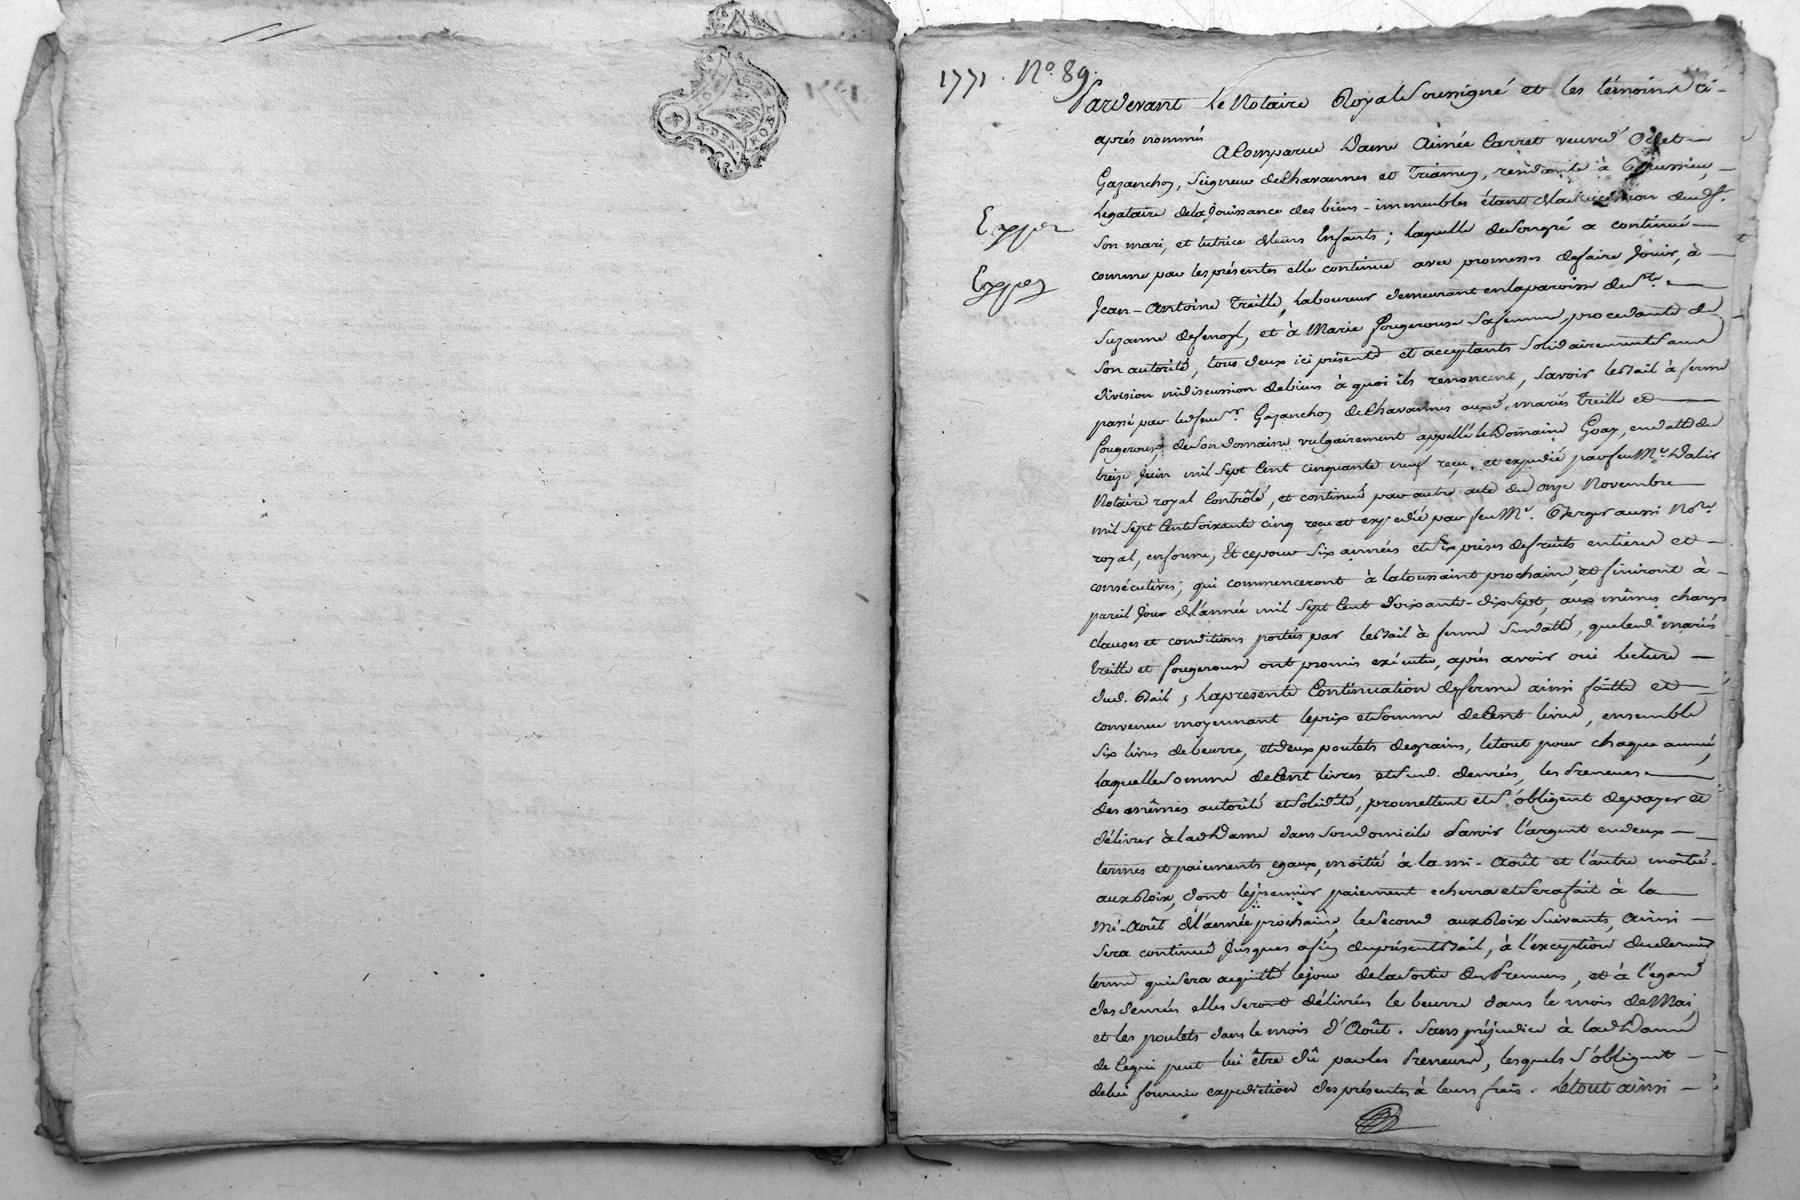 1771. N.o 89.
Pardevant Le Notaire Royal Soussigné et les témoins ci-
après nommés a Comparue Dame Aimée Carret veuve d'
Gazanchon, Seigneur de Chavannes et Trianney, résidante à
Légataire de la Jouissance des biens-immeubles étant de la succession dud. Sr.
Expér
son mari, et tutrice de leurs Enfants; laquelle de son gré a continué
Expéz
comme par les présentes elle continue avec promesses de faire Jouir, à
Jean-Antoine Treille, Laboureur demeurant en la paroisse de Ste.
Suzanne de fenoyl, et à Marie fougerouse sa femme, procedante de
son autorité, tous deux ici présents et acceptants solidairement sans
division ni discussion de biens à quoi ils renoncent, savoir le Bail à ferme
passé par led. feu Sr. Gazanchon de Chavannes auxd. mariés Treille et
fougerouse, de son domaine vulgairement appellé le Domaine Goay, en datte du
treize Juin mil Sept Cent cinquante neuf reçu, et expedié par feu Me. Dalin
Notaire royal Contrôlé, et continué par autre acte du onze Novembre
mil Sept Cent Soixante cinq reçu et expedié par feu Me. Berger aussi Nore.
royal, en forme, Et ce pour Six années et Six prises de fruits entieres et
consécutives; qui commenceront à la toussaint prochaine, et finiront à
pareil Jour de l'année mil Sept Cent Soixante-dix Sept, aux mêmes charges
clauses et conditions portées par le Bail à ferme Susdatté, que lesd. mariés
treille et fougerouse ont promis exécuter, après avoir oui lecture
dud. Bail, La presente Continuation de ferme ainsi faitte et
convenue moyennant le prix et Somme de Cent livres, ensemble
Six livres de beurre, et deux poulets de grains, le tout pour chaque année,
laquelle Somme de Cent livres et Susd. denrées, les Preneurs
des mêmes autorité et Solidité, promettent et S'obligent de payer et
délivrer à lad. Dame dans Son domicile Savoir l'argent en deux
termes et paiements egaux, moitié à la mi-Août et l'autre moitié
aux Roix, dont le premier paiement echerra et Sera fait à la
Mi-Août de l'année prochaine, le Second aux Roix Suivants, ainsi
Sera continué Jusques a fin du présent Bail, à l'exception du dernier
terme qui Sera acquitté le jour de la Sortie des Preneurs, et à l'égard
des denrées elles Seront délivrées le beurre dans le mois de Mai,
et les poulets dans le mois d'Août. Sans préjudice à lad. Dame
de Ce qui peut lui être dû par les Preneurs, lesquels S'obligent
de lui fournir expedition des présentes à leurs frais. Le tout ainsi